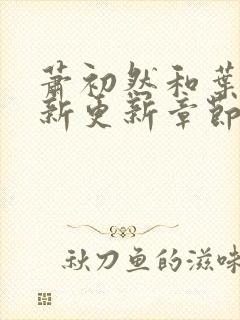 萧初然和葉
新更新章節
秋刀鱼的滋味